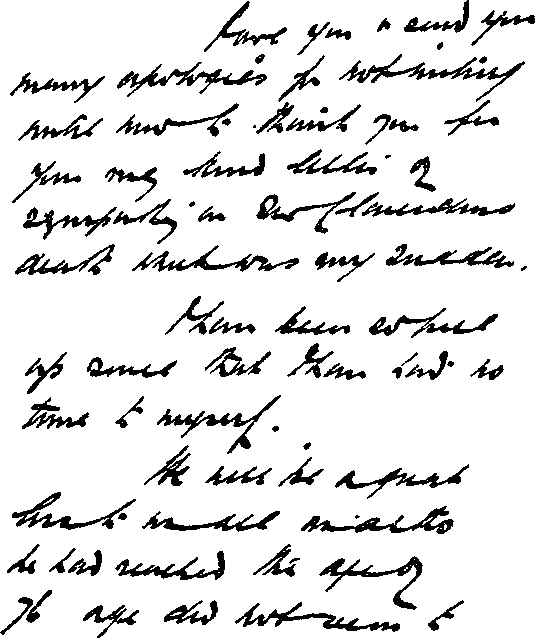 I owe you & send you
many apologies for not writing
until now to thank you for
your very kind letter of
sympathy on Sir
death which was very sudden.
I have been so
up since that I have had no
time to myself.
He will be a great
to us all
he had reached the age of
76 age did not seem to